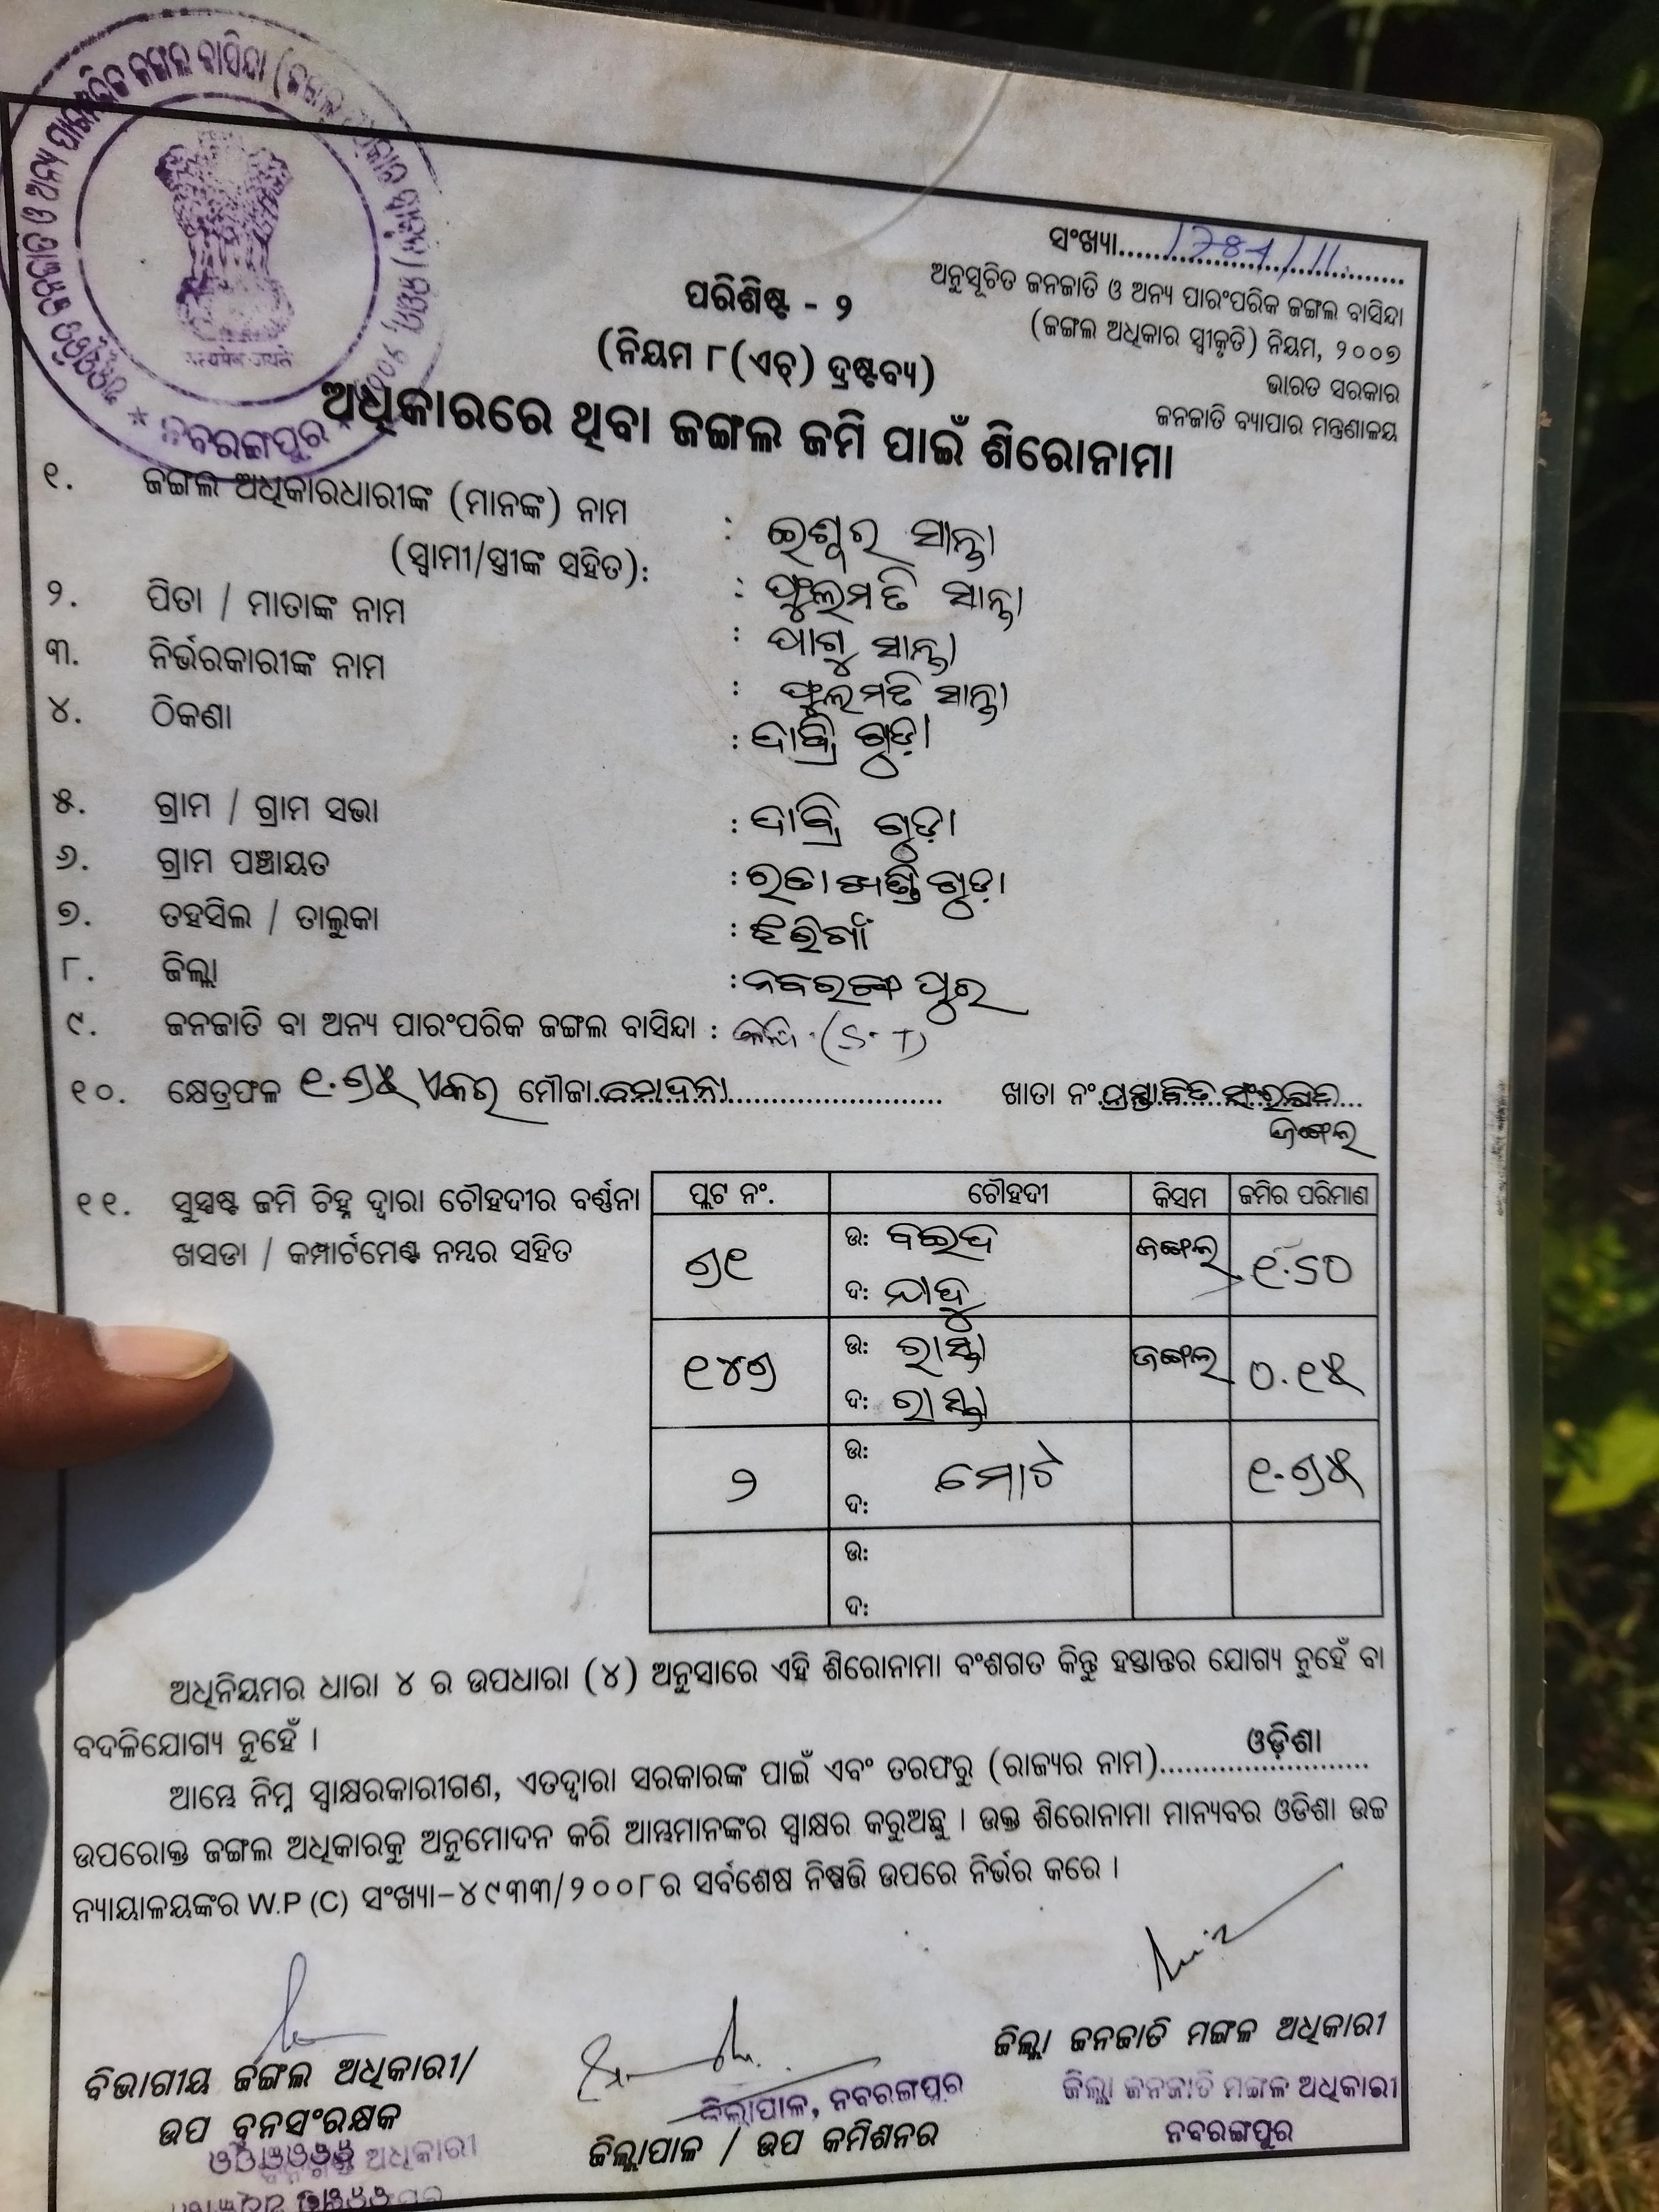 ସଂଖ୍ୟା
ଅନୁସୂଚିତ ଜନଜାତି ଓ ଅନ୍ୟ ପାରଂପରିକ ଜଙ୍ଗଲ ବାସିନ୍ଦା
(ଜଙ୍ଗଲ ଅଧିକାର ସ୍ୱୀକୃତି) ନିୟମ, ୨୦୦୭
ଭାରତ ସରକାର
ଜନଜାତି ବ୍ୟାପାର ମନ୍ତ୍ରଣାଳୟ
ପରିଶିଷ୍ଟ - ୨
(ନିୟମ ୮(ଏଚ୍) ଦ୍ରଷ୍ଟବ୍ୟ)
ଅଧିକାରରେ ଥିବା ଜଙ୍ଗଲ ଜମି ପାଇଁ ଶିରୋନାମା
ନବରଙ୍ଗପୁର
୧. ଜଙ୍ଗଲ ଅଧିକାରଧାରୀଙ୍କ (ମାନଙ୍କ) ନାମ : ଇଶ୍ୱର ସାନ୍ତା
(ସ୍ୱାମୀ/ସ୍ତ୍ରୀଙ୍କ ସହିତ): : ଫୁଲମତି ସାନ୍ତା
୨. ପିତା / ମାତାଙ୍କ ନାମ : ସାନ୍ତା
୩. ନିର୍ଭରକାରୀଙ୍କ ନାମ : ଫୁଲମତି ସାନ୍ତା
୪. ଠିକଣା : ଗୁଡ଼ା
୫. ଗ୍ରାମ / ଗ୍ରାମ ସଭା : ଗୁଡ଼ା
୬. ଗ୍ରାମ ପଞ୍ଚାୟତ :
୭. ତହସିଲ / ତାଲୁକା : ଝରିଗାଁ
୮. ଜିଲ୍ଲା : ନବରଙ୍ଗପୁର
୯. ଜନଜାତି ବା ଅନ୍ୟ ପାରଂପରିକ ଜଙ୍ଗଲ ବାସିନ୍ଦା : (S.T)
୧୦. କ୍ଷେତ୍ରଫଳ ୧.୬୫ ଏକର ମୌଜା ଖାତା ନଂ ପ୍ରସ୍ତାବିତ ସଂରକ୍ଷିତ
ଜଙ୍ଗଲ
୧୧. ସୁସ୍ପଷ୍ଟ ଜମି ଚିହ୍ନ ଦ୍ୱାରା ଚୌହଦୀର ବର୍ଣ୍ଣନା
ଖସଡା / କମ୍ପାର୍ଟମେଣ୍ଟ ନମ୍ବର ସହିତ
ପ୍ଲଟ ନଂ. ଚୌହଦୀ କିସମ ଜମିର ପରିମାଣ
୬୧ ଉ: ଜଙ୍ଗଲ ୧.୫୦
ଦ:
୧୪୬ ଉ: ରାସ୍ତା ଜଙ୍ଗଲ ୦.୧୫
ଦ: ରାସ୍ତା
୨ ଉ: ମୋଟ ୧.୬୫
ଦ:
ଉ:
ଦ:
ଅଧିନିୟମର ଧାରା ୪ ର ଉପଧାରା (୪) ଅନୁସାରେ ଏହି ଶିରୋନାମା ବଂଶଗତ କିନ୍ତୁ ହସ୍ତାନ୍ତର ଯୋଗ୍ୟ ନୁହେଁ ବା
ବଦଳିଯୋଗ୍ୟ ନୁହେଁ ।
ଆମ୍ଭେ ନିମ୍ନ ସ୍ୱାକ୍ଷରକାରୀଗଣ, ଏତଦ୍ୱାରା ସରକାରଙ୍କ ପାଇଁ ଏବଂ ତରଫରୁ (ରାଜ୍ୟର ନାମ)..........ଓଡ଼ିଶା..........
ଉପରୋକ୍ତ ଜଙ୍ଗଲ ଅଧିକାରକୁ ଅନୁମୋଦନ କରି ଆମ୍ଭମାନଙ୍କର ସ୍ୱାକ୍ଷର କରୁଅଛୁ । ଉକ୍ତ ଶିରୋନାମା ମାନ୍ୟବର ଓଡିଶା ଉଚ୍ଚ
ନ୍ୟାୟାଳୟଙ୍କର W.P (C) ସଂଖ୍ୟା-୪୯୩୩/୨୦୦୮ର ସର୍ବଶେଷ ନିଷ୍ପତ୍ତି ଉପରେ ନିର୍ଭର କରେ ।
ବିଭାଗୀୟ ଜଙ୍ଗଲ ଅଧିକାରୀ/
ଉପ ବନସଂରକ୍ଷକ
ଜିଲ୍ଲାପାଳ, ନବରଙ୍ଗପୁର
ଜିଲ୍ଲାପାଳ / ଉପ କମିଶନର
ଜିଲ୍ଲା ଜନଜାତି ମଙ୍ଗଳ ଅଧିକାରୀ
ଜିଲ୍ଲା ଜନଜାତି ମଙ୍ଗଳ ଅଧିକାରୀ
ନବରଙ୍ଗପୁର